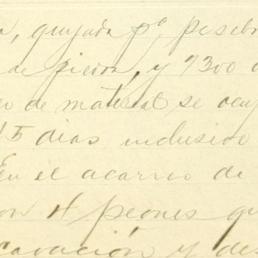 quijada pª pesebr
de piedra, y 9300
de material se ocup
15 dias inclusive
En el acarreo de
4 peones qu
cavación y des